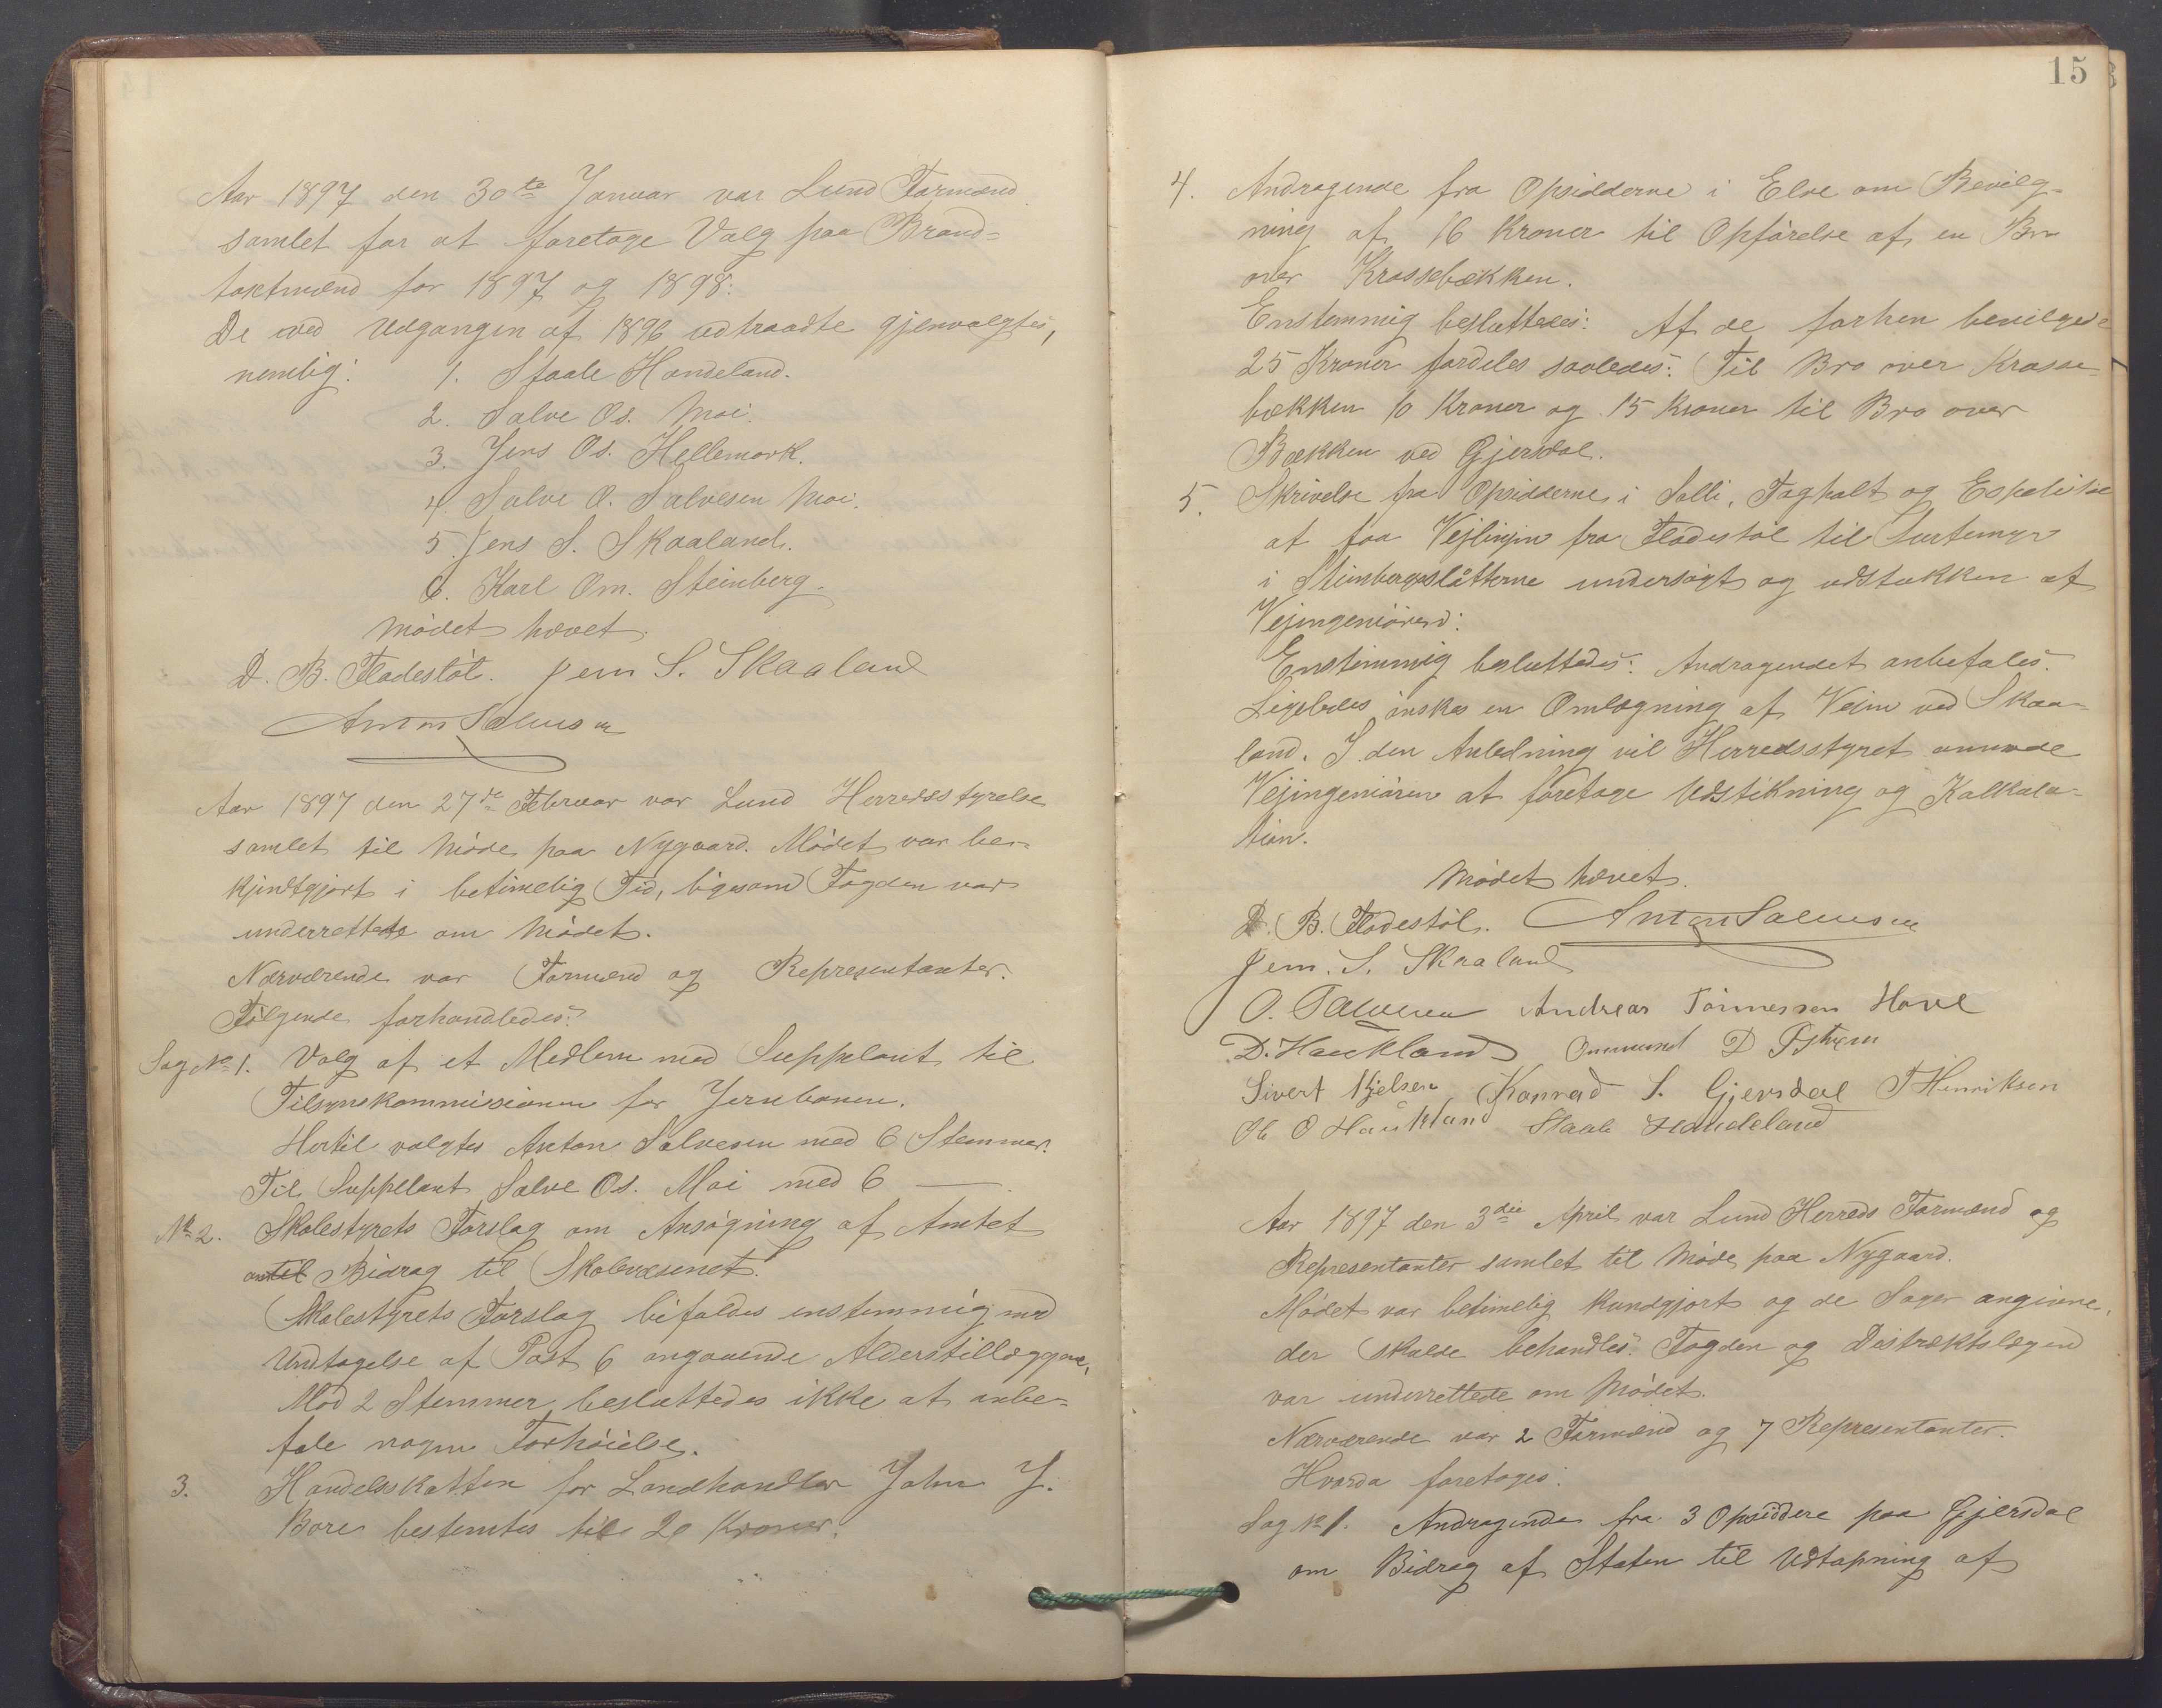 Aar 1897 den 30te Januar var Lund Formænd
samlet for at foretage Valg paa Brand-
taxtmænd for 1897 og 1898:
De ved Udgangen af 1896 udtraadte gjenvalgtes,
nemlig: 1. Staale Handeland.
2. Salve Os. Moi.
3. Jens Os. Hellemork.
4. Salve O. Salvesen Moi.
5. Jens S. Skaaland.
6. Karl Om. Steinberg.
Mødet hævet.
D. B. Fladestøl. Jens S. Skaaland
Anton Salvesen
Aar 1897 den 27de Februar var Lund Herredsstyrelse
samlet til Møde paa Nygaard. Mødet var be-
kjendtgjort i betimelig Tid, ligesom Fogden var
underrettede om Mødet.
Nærværende var Formænd og Representanter.
Følgende forhandledes:
Sag No 1. Valg af et Medlem med Supplant til
Tilsynskommissionen for Jernbanen.
Hertil valgtes Anton Salvesen med 6 Stemmer.
Til Supplant Salve Os. Moi med 6 —
No 2. Skolestyrets Forslag om Ansøgning af Amtet
om til Bidrag til Skolevæsenet.
Skolestyrets Forslag bifaldes enstemmig med
Undtagelse af Post 6 angaaende Alderstillæggene.
Mod 2 Stemmer besluttedes ikke at anbe-
fale nogen Forhøielse.
3. Handelsskatten for Landhandler John J.
Bore bestemtes til 20 Kroner.
15
4. Andragende fra Opsidderne i Elve om Bevilg-
ning af 16 Kroner til Opførelse af en Bro
over Krossebækken.
Enstemmig besluttedes: Af de forhen bevilgede
25 Kroner fordeles saaledes: Til Bro over Krosse-
bækken 10 Kroner og 15 Kroner til Bro over
Bækken ved Gjersdal.
5. Skrivelse fra Opsidderne i Salli, Toghalt og Espetvedt
at faa Vejlinjen fra Fladestøl til Surtemyr
i Steinbergslåtterne undersøgt og udstukken af
Vejingeniøren:
Enstemmig besluttedes: Andragendet anbefales.
Ligeledes ønskes en Omlægning af Vejen ved Skaa-
land. I den Anledning vil Herredsstyret anmode
Vejingeniøren at foretage Udstikning og Kalkula-
tion.
Mødet hævet.
D. B. Fladestøl. Anton Salvesen
Jens. S. Skaaland
O. Salvesen Andreas Tønnessen Hove
D. Haukland Ommund D
Sivert Njelsen Konrad S. Gjersdal T Henriksen
Ole O Haukland Staale Handeland
Aar 1897 den 3die April var Lund Herreds Formænd og
Representanter samlet til Møde paa Nygaard.
Mødet var betimelig kundgjort og de Sager angivne,
der skulde behandles. Fogden og Distriktslægen
var underrettede om Mødet.
Nærværende var 2 Formænd og 7 Representanter.
Hvorda foretoges:
Sag No 1. Andragende fra 3 Opsiddere paa Gjersdal
om Bidrag af Staten til Udtapning af